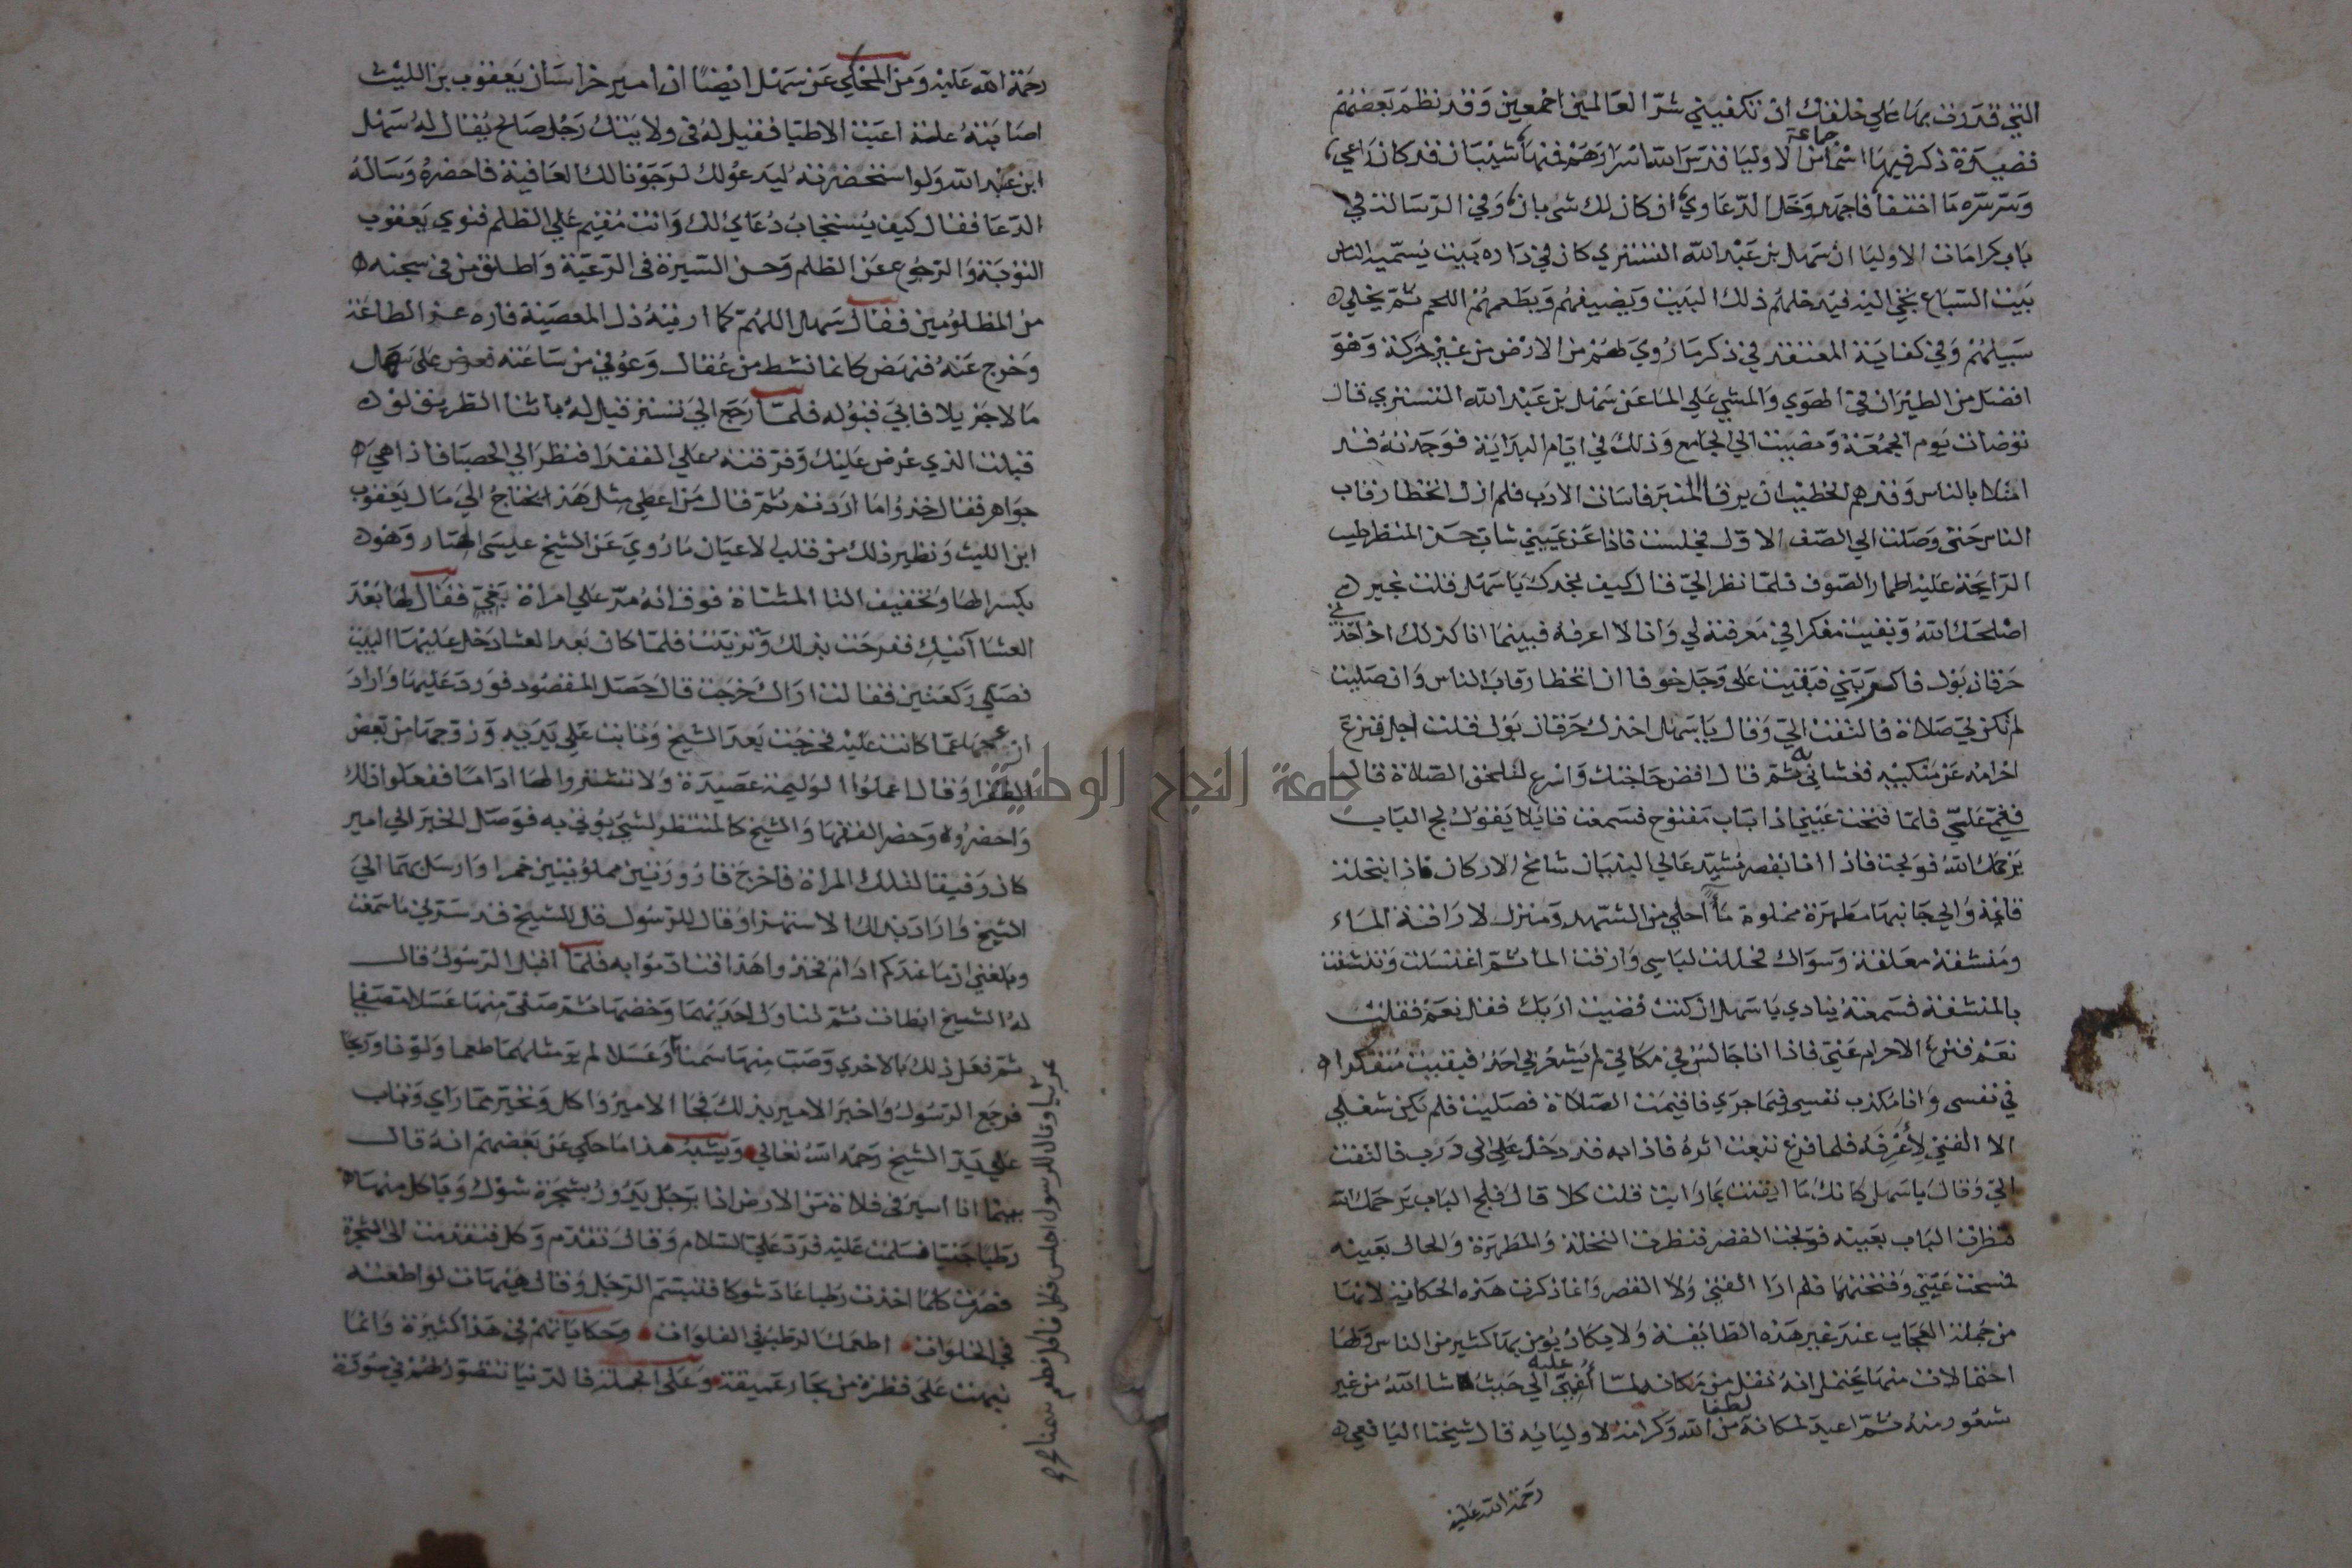 التي قدرت بها على خلقك ان تكفيني شر العالمين اجمعين وقد نظم بعضهم
قصيدة ذكر فيها اسما جماعة من الاوليا قدس الله اسرارهم فمنها شيبان قد كان راعي
وسر سره ما اختفا فاجهد وخل الدعاوي ان كان لك شي بان وفي الرسالة في
باب كرامات الاوليا ان سهل بن عبد الله التستري كان في داره بيت يسميه الناس
بيت السباع تجي اليه فيدخلهم ذلك البيت ويضيفهم ويطعمهم اللحم ثم يخلي
سبيلهم وفي كفاية المعتقد في ذكر ما زوي لهم من الارض من غير حركة وهو
افضل من الطيران في الهوي والمشي علي الما عن سهل بن عبد الله التستري قال
توضات يوم الجمعة ومضيت الي الجامع وذلك في ايام البداية فوجدته قد
امتلا بالناس وقد هم الخطيب ان يرقا المنبر فاسات الادب فلم ازل اتخطا رقاب
الناس حتى وصلت الي الصف الاول فجلست فاذا عن يميني شاب حسن المنظر طيب
الرايحة عليه اطمار الصوف فلما نظر الي قال كيف تجدك يا سهل قلت بخير
اصلحك الله وبقيت مفكرا في معرفته لي وانا لا اعرفه فبينما انا كذلك اذ اخذني
حرقان بول فاكربني فبقيت على وجل خوفا ان اتخطا رقاب الناس وان صليت
لم تكن لي صلاة فالتفت الي وقال يا سهل اخذك حرقان بول قلت اجل فنزع
احرامه عن منكبيه فغشاني به ثم قال اقض حاجتك واسرع لتلحق الصلاة قال
فغمي علي فلما فتحت عيني اذا بباب مفتوح فسمعت قايلا يقول لج الباب
يرحمك الله فولجت فاذا انا بقصر مشيد عالي البنيان شامخ الاركان فاذا بنخلة
قايمة والي جانبها مطهرة مملوة مآءً احلي من الشهد ومنزل لاراقة المآء
ومنشفة معلقة وسواك فحللت لباسي وارقت الما ثم اغتسلت وتنشفت
بالمنشفة فسمعته ينادي يا سهل ان كنت قضيت اربك فقل نعم فقلت
نعم فنزع الاحرام عني فاذا انا جالس في مكاني لم يشعر بي احد فبقيت متفكرا
في نفسي وانا مكذب نفسي فيما جري فاقيمت الصلاة فصليت فلم يكن شغلي
الا الفتي لأعرفه فلما فرغ تتبعت اثره فاذا به قد دخل علي الي درب فالتفت
الي وقال يا سهل كانك ما ايقنت بما رايت قلت كلا قال فلج الباب يرحمك الله
فنظرت الباب بعينه فولجت القصر فنظرت النخلة والمطهرة والحال بعينه
فمسحت عيني وفتحتهما فلم ار الفتي ولا القصر وانما ذكرت هذه الحكاية لانها
من جملة العجايب عند غير هذه الطايفة ولا يكاد يؤمن بها كثير من الناس ولها
احتمالات منها يحتمل انه نقل من مكانه لما أغمي عليه الي حيث شا الله من غير
شعور منه ثم اعيد لمكانه لطفا من الله وكرامة لاوليايه قال شيخنا اليافعي
رحمة الله عليه
رحمة الله عليه ومن المحكي عن سهل ايضًا ان امير خراسان يعقوب بن الليث
اصابته علة اعيت الاطبا فقيل له في ولايتك رجل صالح يقال له سهل
ابن عبد الله ولو استحضرته ليدعو لك لرجونا لك العافية فاحضره وساله
الدعا فقال كيف يستجاب دعاي لك وانت مقيم علي الظلم فنوي يعقوب
التوبة والرجوع عن الظلم وحسن السيرة في الرعية واطلق من في سجنه
من المظلومين فقال سهل اللهم كما اريته ذل المعصية فاره عز الطاعة
وخرج عنه فنهض كانما نشط من عقال وعوفي من ساعته فعرض على سهل
مالا جزيلا فابي قبوله فلما رجع الي تستر قيل له باثنا الطريق لو
قبلت الذي عرض عليك وفرقته علي الفقرا فنظر الي الحصبا فاذا هي
جواهر فقال خذوا ما اردتم ثم قال من اعطي مثل هذا يحتاج الي مال يعقوب
ابن الليث ونظير ذلك من قلب الاعيان ما روي عن الشيخ عيسى الهتار وهو
بكسر الها وتخفيف التا المثناة فوق انه مر علي امراة بغي فقال لها بعد
العشا آتيك ففرحت بذلك وتزينت فلما كان بعد العشا دخل عليها البيت
فصلي ركعتين فقالت اراك خرجت قال حصل المقصود فورد عليها وارد
ازعجها عما كانت عليه فخرجت بعد الشيخ وتابت علي يديه وزوجها من بعض
الفقرا وقال اعملوا الوليمة عصيدة ولا تشتروا لها اداما ففعلوا ذلك
واحضروه وحضر الفقها والشيخ كالمنتظر لشي يوتي به فوصل الخبر الي امير
كان رفيقا لتلك المراة فاخرج قارورتين مملوتين خمرا وارسل بهما الي
الشيخ واراد بذلك الاستهزا وقال للرسول قل للشيخ قد سرني ما سمعت
وبلغني ان ما عندكم ادام فخذوا هذا فتادموا به فلما اقبل الرسول قال
له الشيخ ابطات ثم تناول احديهما وخضها ثم صب منها عسلا مصفي
ثم فعل ذلك بالاخري وصب منها سمنا وعسلا لم ير مثلهما طعما ولونا وريحا
فرجع الرسول واخبر الامير بذلك فجا الامير واكل وتحير مما راي وتاب
علي يد الشيخ رحمه الله تعالي ويشبه هذا ما حكي عن بعضهم انه قال
بينما انا اسير في فلاة من الارض اذا برجل يدور بشجرة شوك وياكل منها
رطبا جنيا فسلمت عليه فرد علي السلام وقال تقدم وكل فتقدمت الى الشجرة
فصرت كلما اخذت رطبا عاد شوكا فتبسم الرجل وقال هيهات لو اطعته
في الخلوات اطعمك الرطب في الفلوات وحكاياتهم في هذا كثيرة وانما
نبهت على قطرة من بحار عميقة وعلى الجملة فالدنيا تتصور لهم في صورة
وقال للرسول اجلس فكل
جامعة النجاح الوطنية